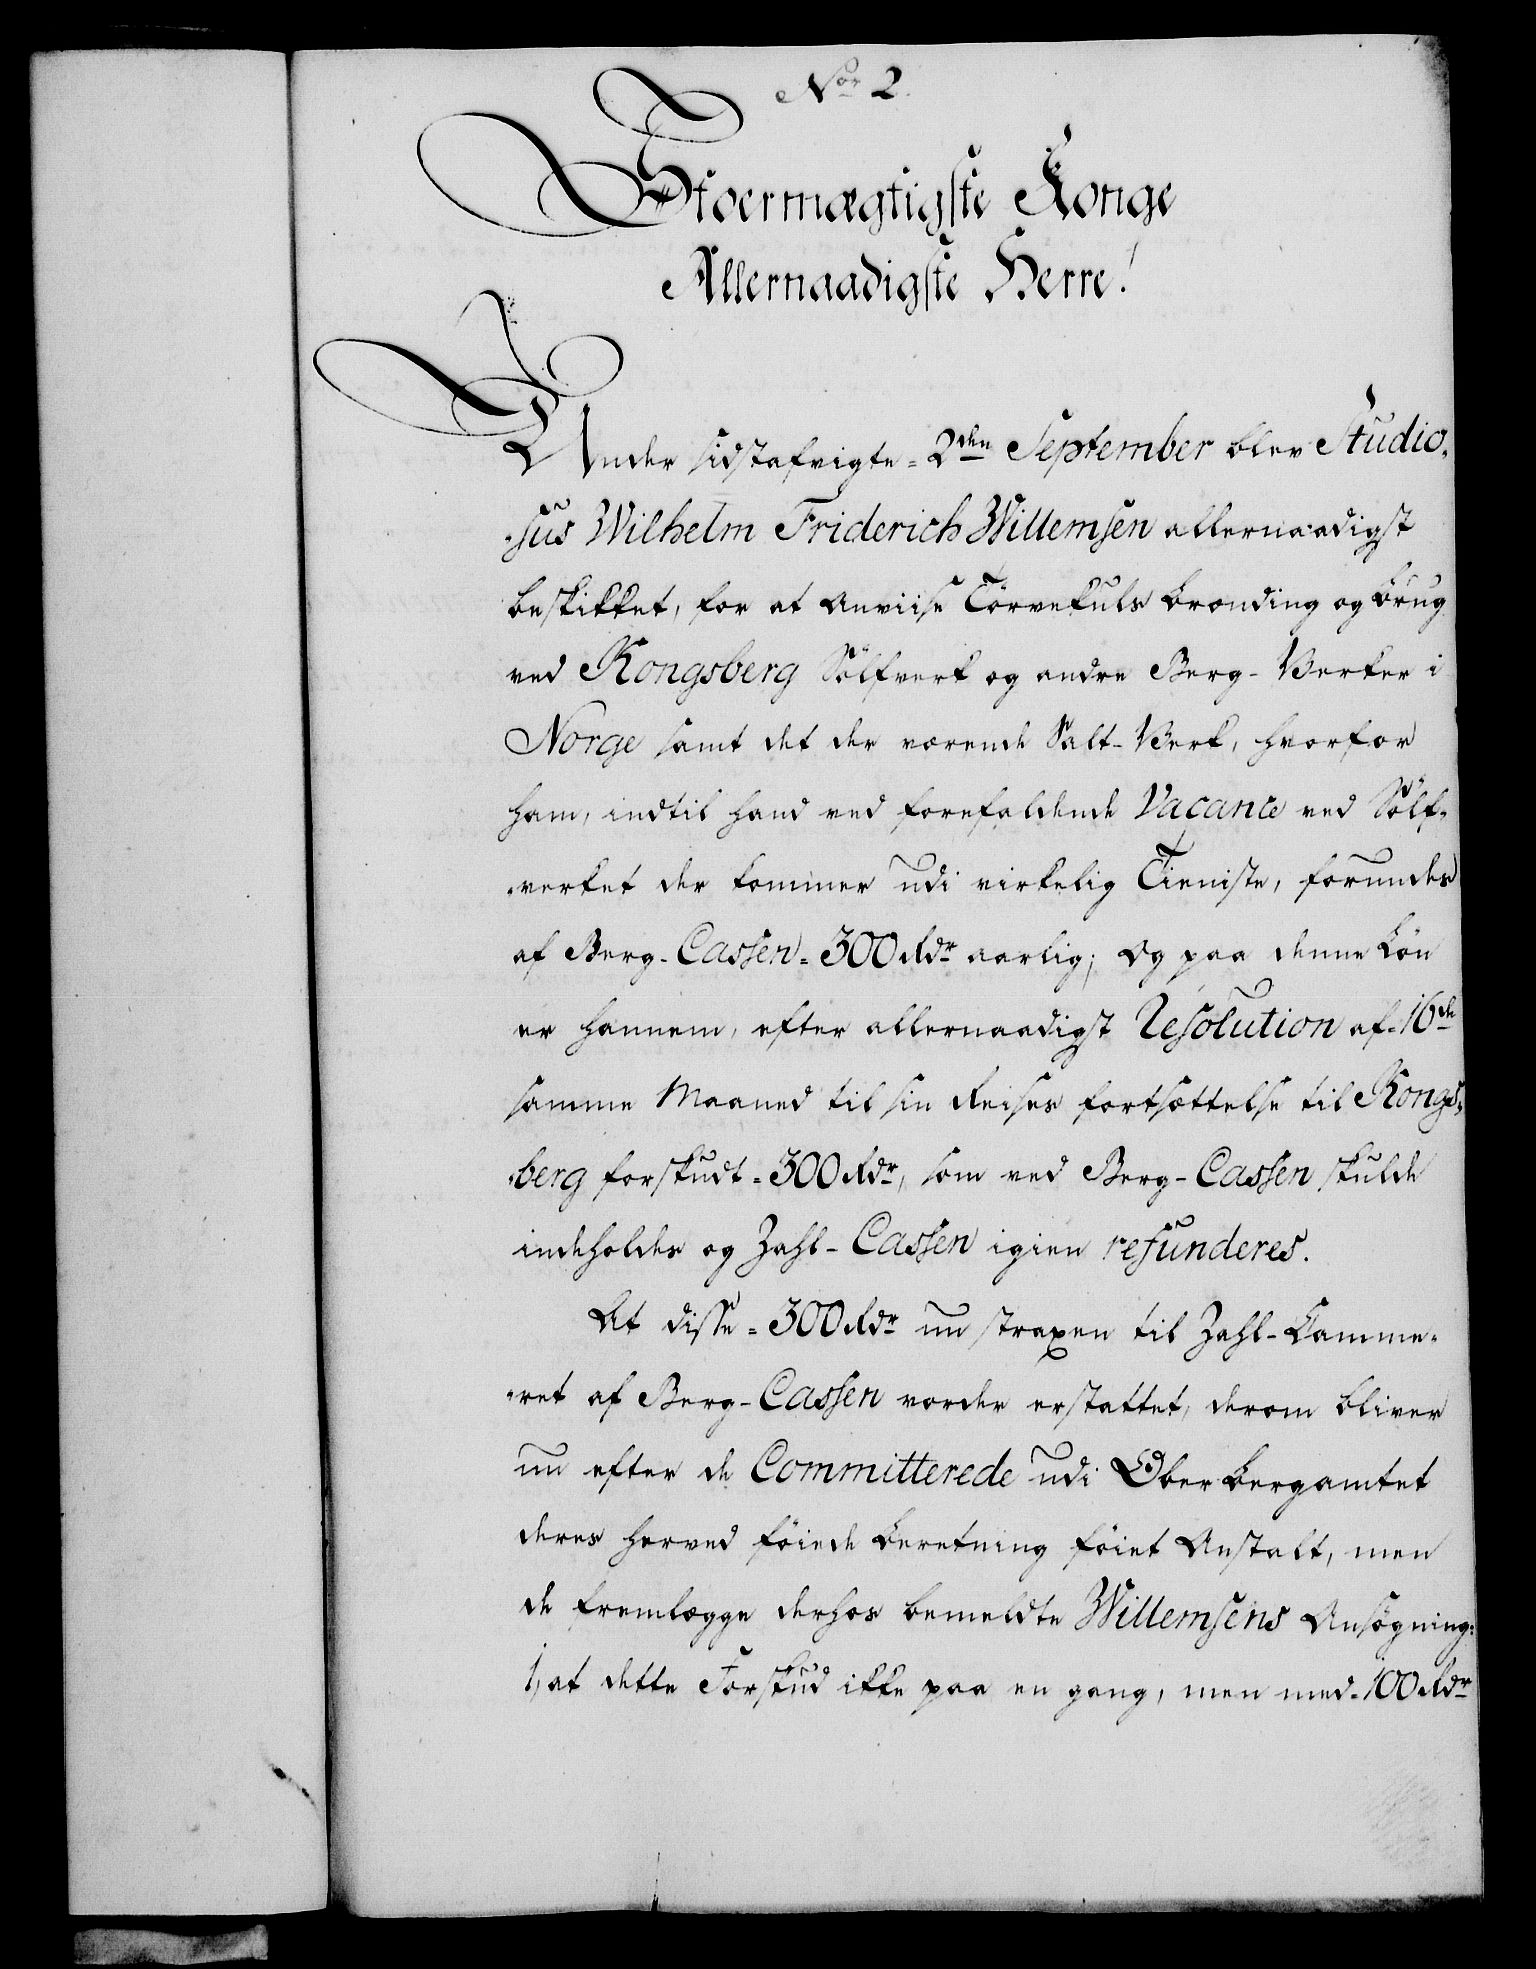 Nor 2.
Stoermægtigste Konge
Allernaadigste Herre!
Under sidstafvigte = 2den September blev Studio-
-sus Wilhelm Friderich Willemsen allernaadigst
beskikket, for at anviise Törvekuls Brænding og Brug
ved Kongsberg Sölfverk og andre Berg-Verker i
Norge samt det der værende Salt-Verk, hvorfor
ham, indtil hand ved forefaldende Vacance ved Sölf-
-verket der kommer udi virkelig Tieniste, forundes
af Berg-Cassen = 300 Rdr aarlig; Og paa denne Lön
er hannem, efter allernaadigst Resolution af 16de
samme Maaned til sin Reises fortsættelse til Kongs-
-berg forskudt = 300 Rdr, som ved Berg-Cassen skulde
indeholdes og Zahl-Cassen igien refunderes.
At disse = 300 Rdr nu straxen til Zahl-Camme-
-ret af Berg-Cassen vorder erstattet, derom bliver
nu efter de Committerede udi Ober Bergamtet
deres herved föiede Beretning föiet Anstalt, men
de fremlægge derhos bemeldte Willemsens Ansögning:
1, at dette Forskud ikke paa en gang, men med 100 Rdr